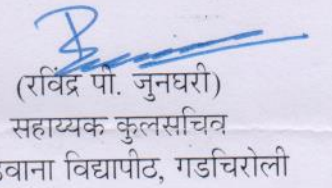 (रविंद्र पी. जुनघरी)
सहाय्यक कुलसचिव
विद्यापीठ, गडचिरोली